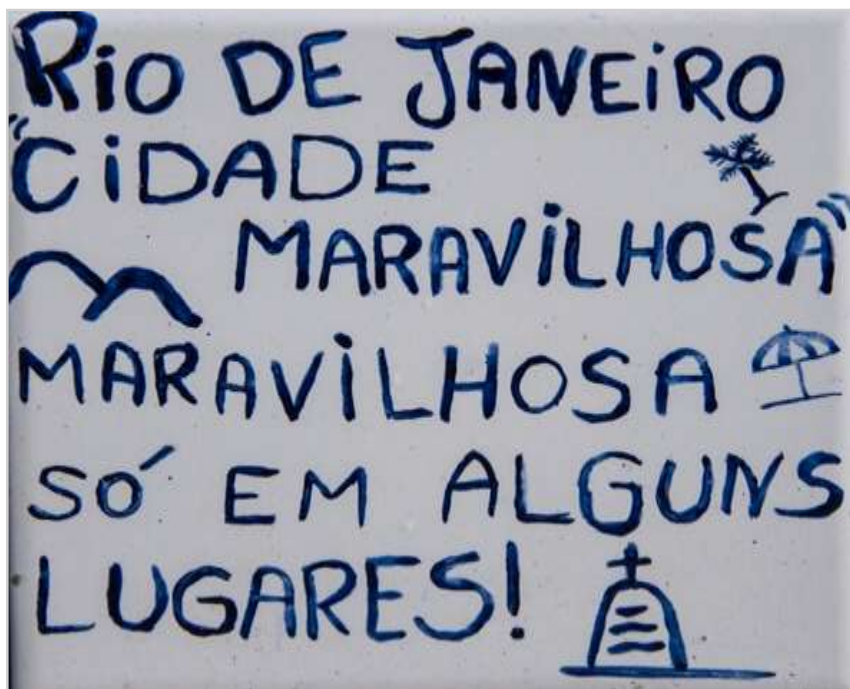 RiO DE JANEiRO
"CiDADE
MARAVİLHOSA"
MARAVİLHOSA
SÓ EM ALGUNS
LUGARES!